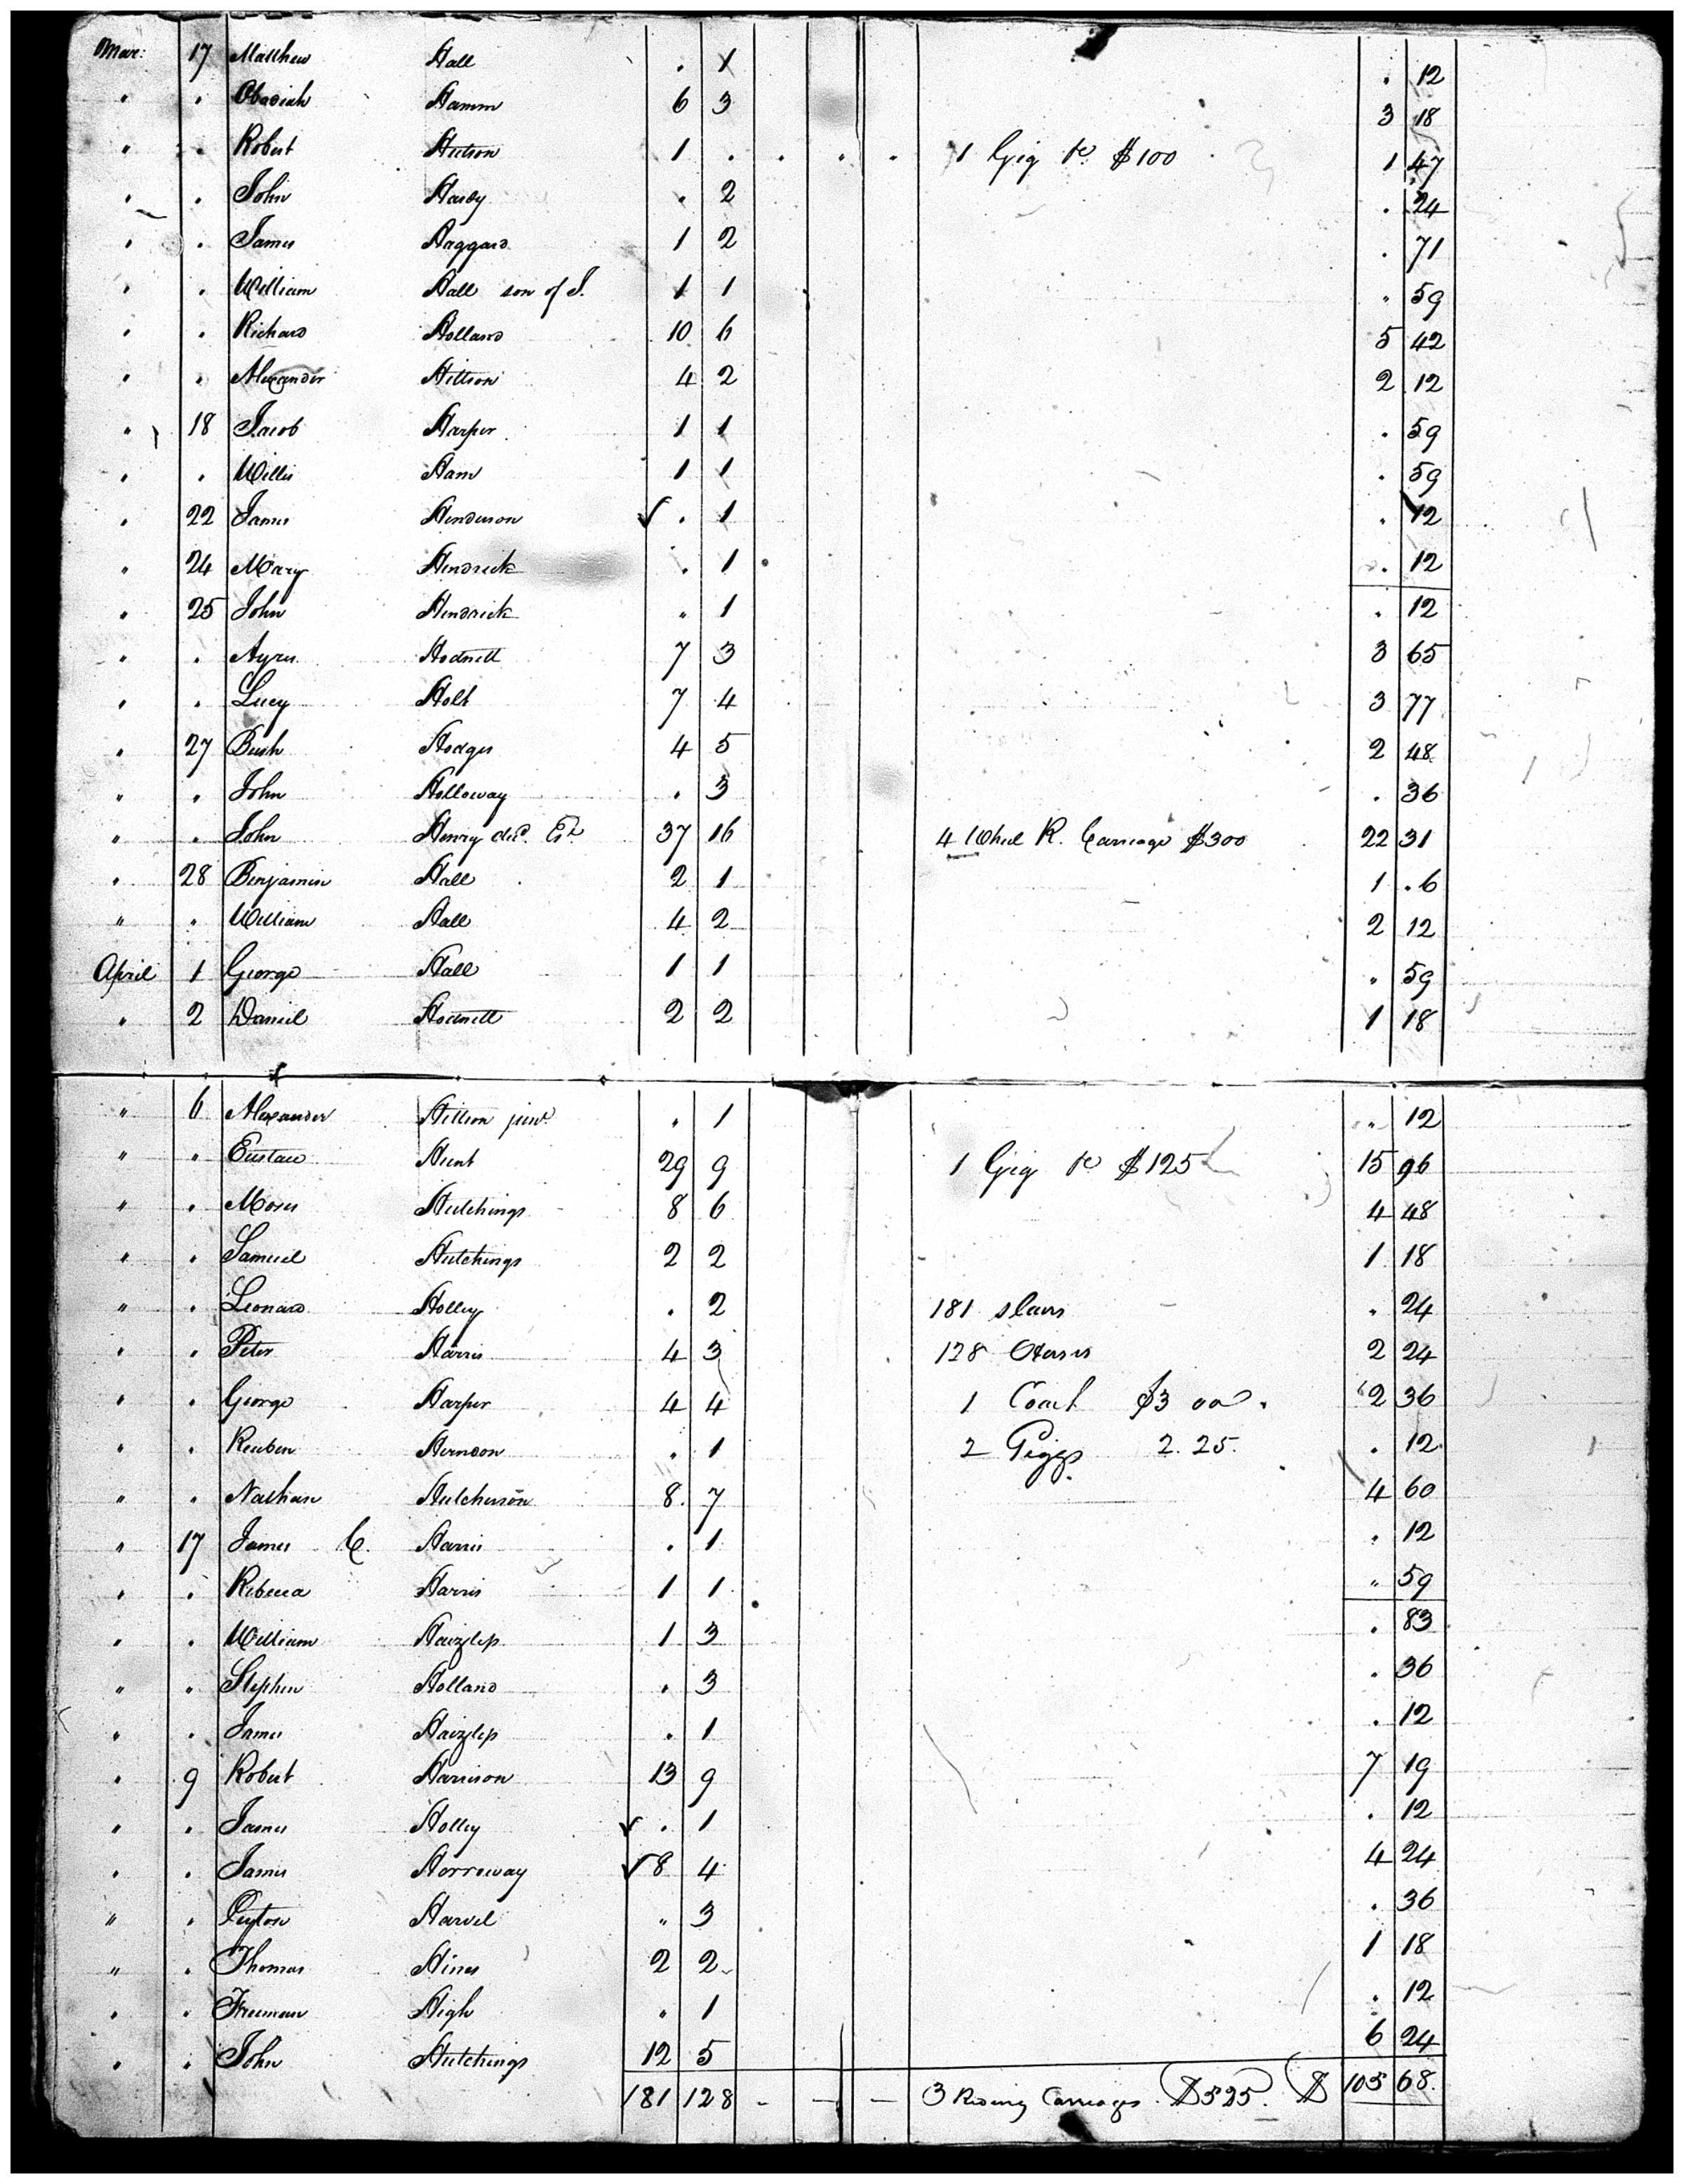 Mar: 17 Matthew Hall . 1 . 12
" . Obadiah Hamm 6 3 3 18
" . Robert Hutson 1 . . . . 1 Gig &c $100 1 47
" . John . 2 . 24
" . James Haggard 1 2 . 71
" . William Hall son of J. 1 1 " 59
" . Richard Holland 10 6 5 42
" . Alexander Hillson 4 2 2 12
" 18 Jacob Harper 1 1 . 59
" . Willis Ham 1 1 . 59
" 22 James Henderson ✓ . 1 . 12
" 24 Mary Hendrick . 1 . 12
" 25 John Hendrick " 1 . 12
" . Ayres Hodnett 7 3 3 65
" . Lucy Holt 7 4 3 77
" 27 Bush Hodges 4 5 2 48
" " John Holloway . 3 . 36
" . John Henry decd. Est. 37 16 4 Wheel R. Carriage $300 22 31
" 28 Benjamin Hall 2 1 1 . 6
" " William Hall 4 2 2 12
April 1 George Hall 1 1 " 59
" 2 Daniel Hodnett 2 2 1 18
" 6 Alexander Hillson junr. . 1 " 12
" " Eustace Hunt 29 9 1 Gig &c $125 15 96
" . Moses Hutchings 8 6 4 48
" . Samuel Hutchings 2 2 1 18
" . Leonard Holley . 2 181 slaves . 24
" . Peter Harris 4 3 128 Horses 2 24
" . George Harper 4 4 1 Coach $3 00 . 2 36
" . Reuben Herndon . 1 2 Giggs 2.25. . 12
" . Nathan Hutcherson 8 7 4 60
" 17 James C. Harris . 1 . 12
" . Rebecca Harris 1 1 " 59
" . William Haizlip 1 3 . 83
" " Stephen Holland . 3 . 36
" . James Haizlip . 1 . 12
" 9 Robert Harrison 13 9 7 19
" . James Holley ✓ . 1 . 12
" . James Horroway ✓ 8 4 4 24
" . Peyton Harvel " 3 . 36
" . Thomas Hines 2 2 1 18
" . Freeman High " 1 . 12
" " John Hutchings 12 5 6 24
181 128 - - - 3 Riding Carriages . $525. $ 105 68.